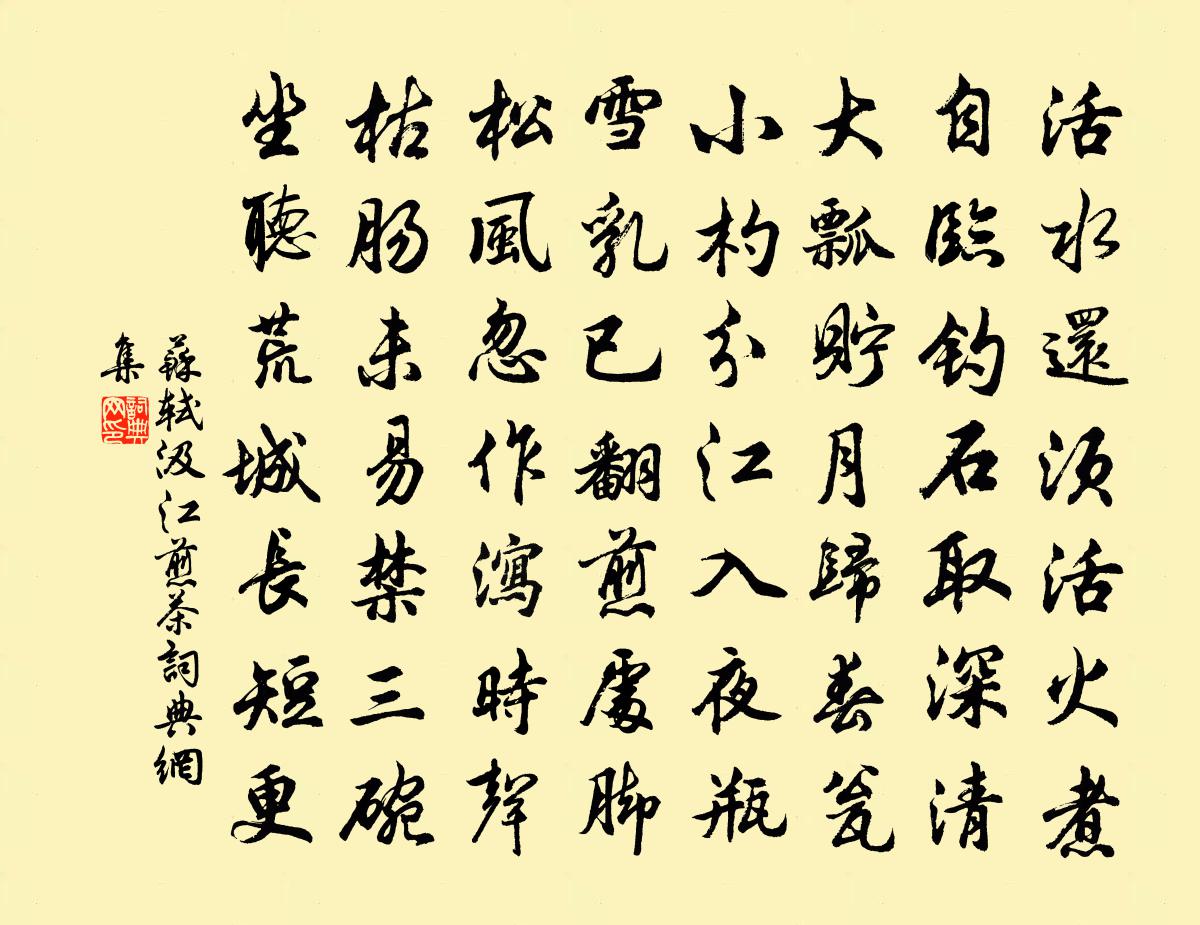 活水還須活火煮
自臨釣石取深清
大瓢貯月歸春瓮
小杓分江入夜瓶
雪乳已翻煎處脚
松風忽作瀉時聲
枯腸未易禁三碗
坐聽荒城長短更
蘇軾汲江煎茶詞典網
集
詞典
网印